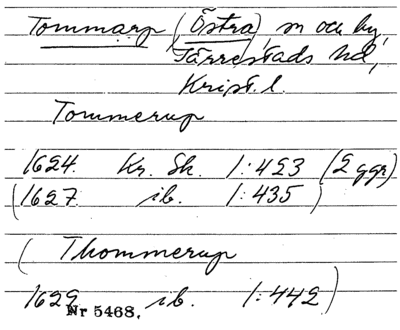 Tommarp (Östra), sn och by,
Järrestads hd,
Krist. l.
Tommerup
1624. Kr. Sk. 1:423 (2 ggr)
(1627. ib. 1:435)
(Thommerup
1629 ib. 1:442)
Nr 5468.